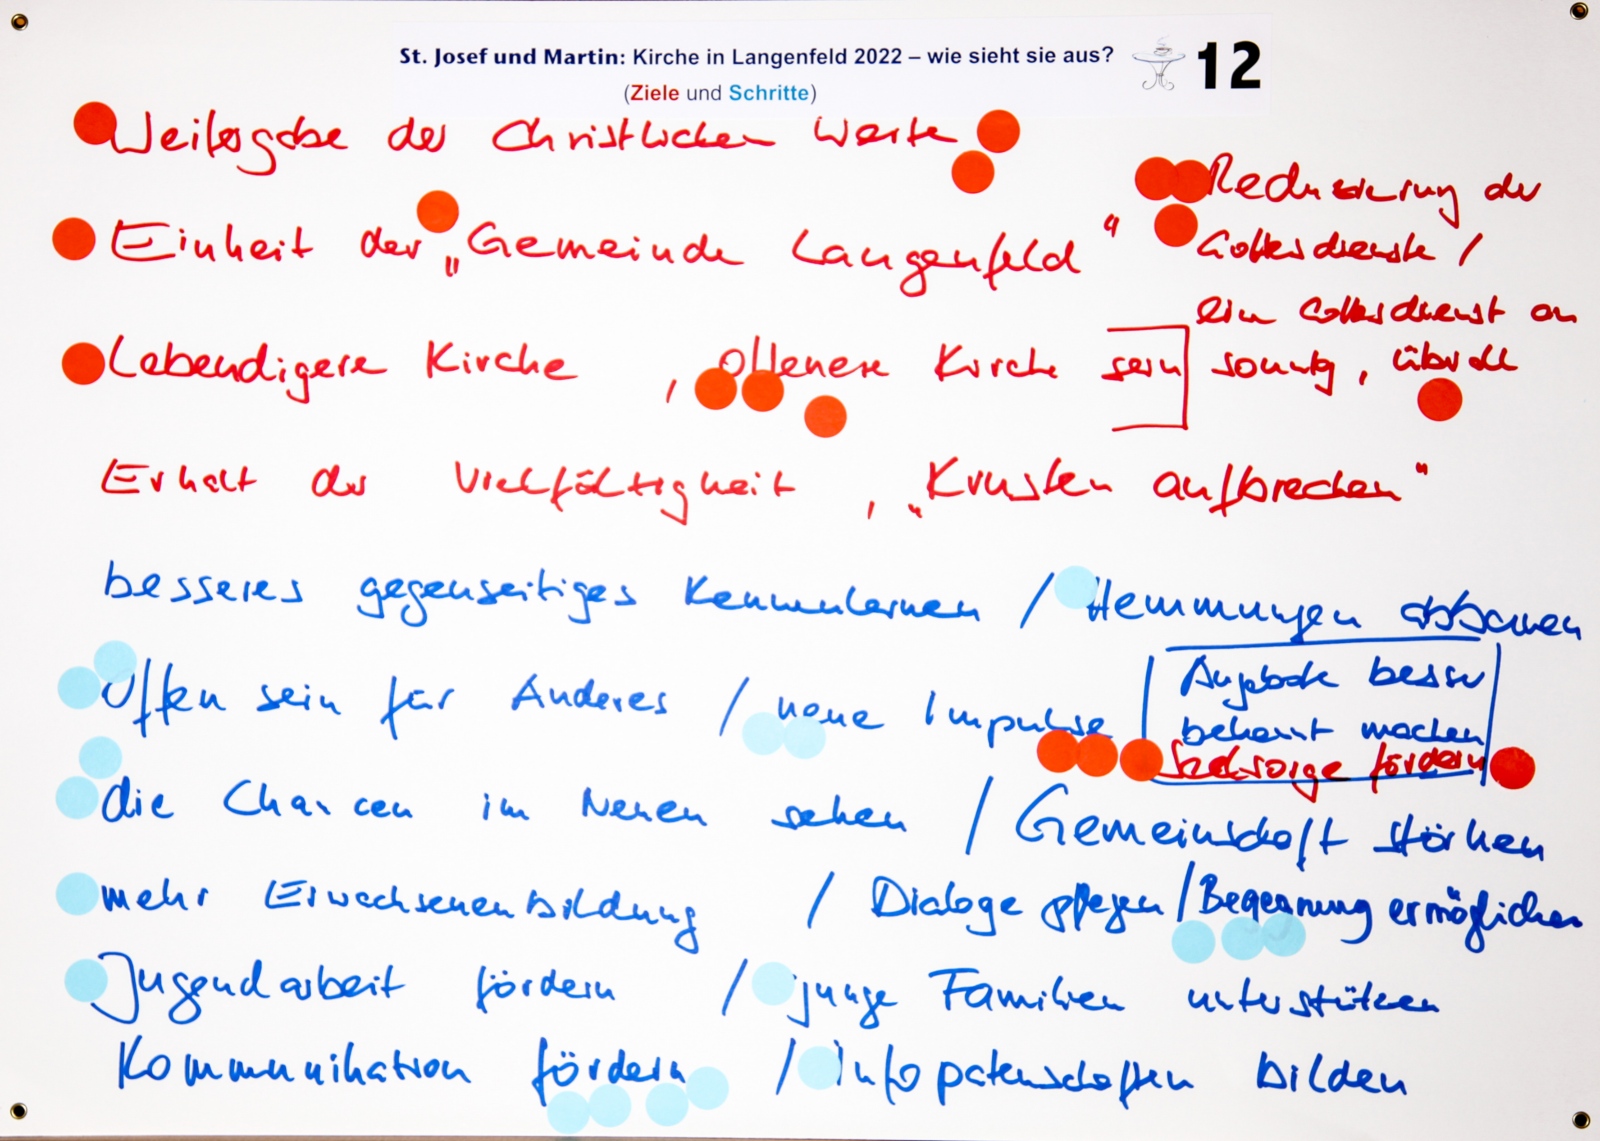 St. Josef und Martin: Kirche in Langenfeld 2022 – wie sieht sie aus?
12
(Ziele und Schritte)
Weitergabe der Christlichen Werte
Einheit der „Gemeinde Langenfeld“
Lebendigere Kirche , offenere Kirche sein
Reduzierung der
Gottesdienste /
ein Gottesdienst am
sonntg, überall
Erhalt der Vielfältigkeit , „Krusten aufbrechen“
besseres gegenseitiges Kennenlernen / Hemmungen abbauen
Offen sein für Anderes / neue Impulse
Angebote besser
bekannt machen
Seelsorge fördern
die Chancen im Neuen sehen / Gemeinschaft stärken
mehr Erwachsenenbildung / Dialoge pflegen / Begegnung ermöglichen
Jugendarbeit fördern / junge Familien unterstützen
Kommunikation fördern / Infopatenschaften bilden